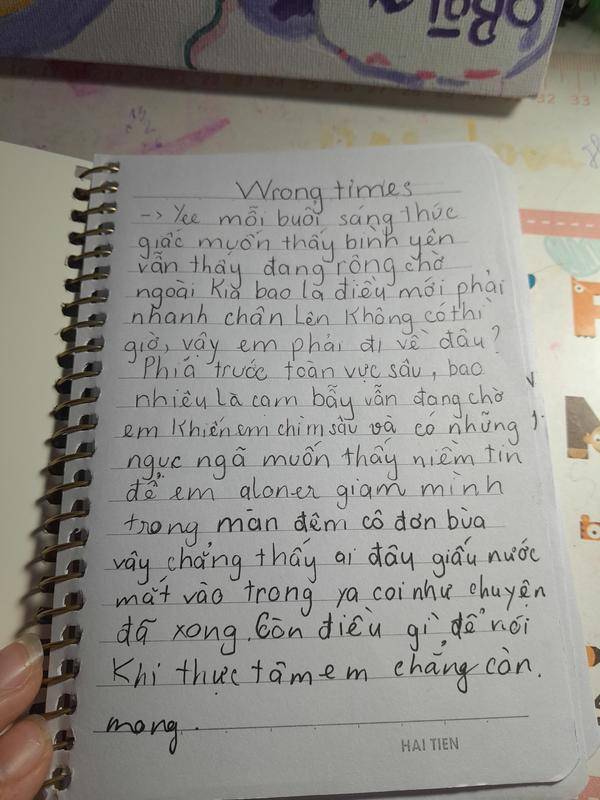 Bãi
32 33
Wrong times
-> Yee mỗi buổi sáng thức
giấc muốn thấy bình yên
vẫn thấy đang rông chờ
ngoài Kia bao la điều mới phải
nhanh chân Lên Không có thì
giờ, vậy em phải đi về đâu?
Phía trước toàn vực sâu, bao
nhiêu là cam bẫy vẫn đang chờ
em Khiến em chìm sâu và có những
ngục ngã muốn thấy niềm tin
để em aloner giam mình
trong màn đêm cô đơn bủa
vây chẳng thấy ai đâu giấu nước
mắt vào trong ya coi như chuyện
đã xong. Còn điều gì để nói
Khi thực tâm em chẳng còn.
mong.
HAI TIEN